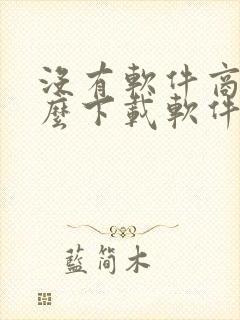 没有軟件商
麼下載軟件
藍簡木